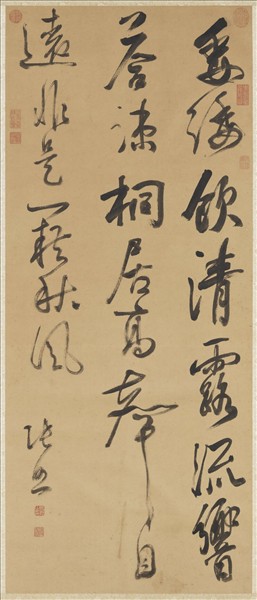 垂緌飲清露流響
疎桐居高聲自
遠非是藉秋風
張照